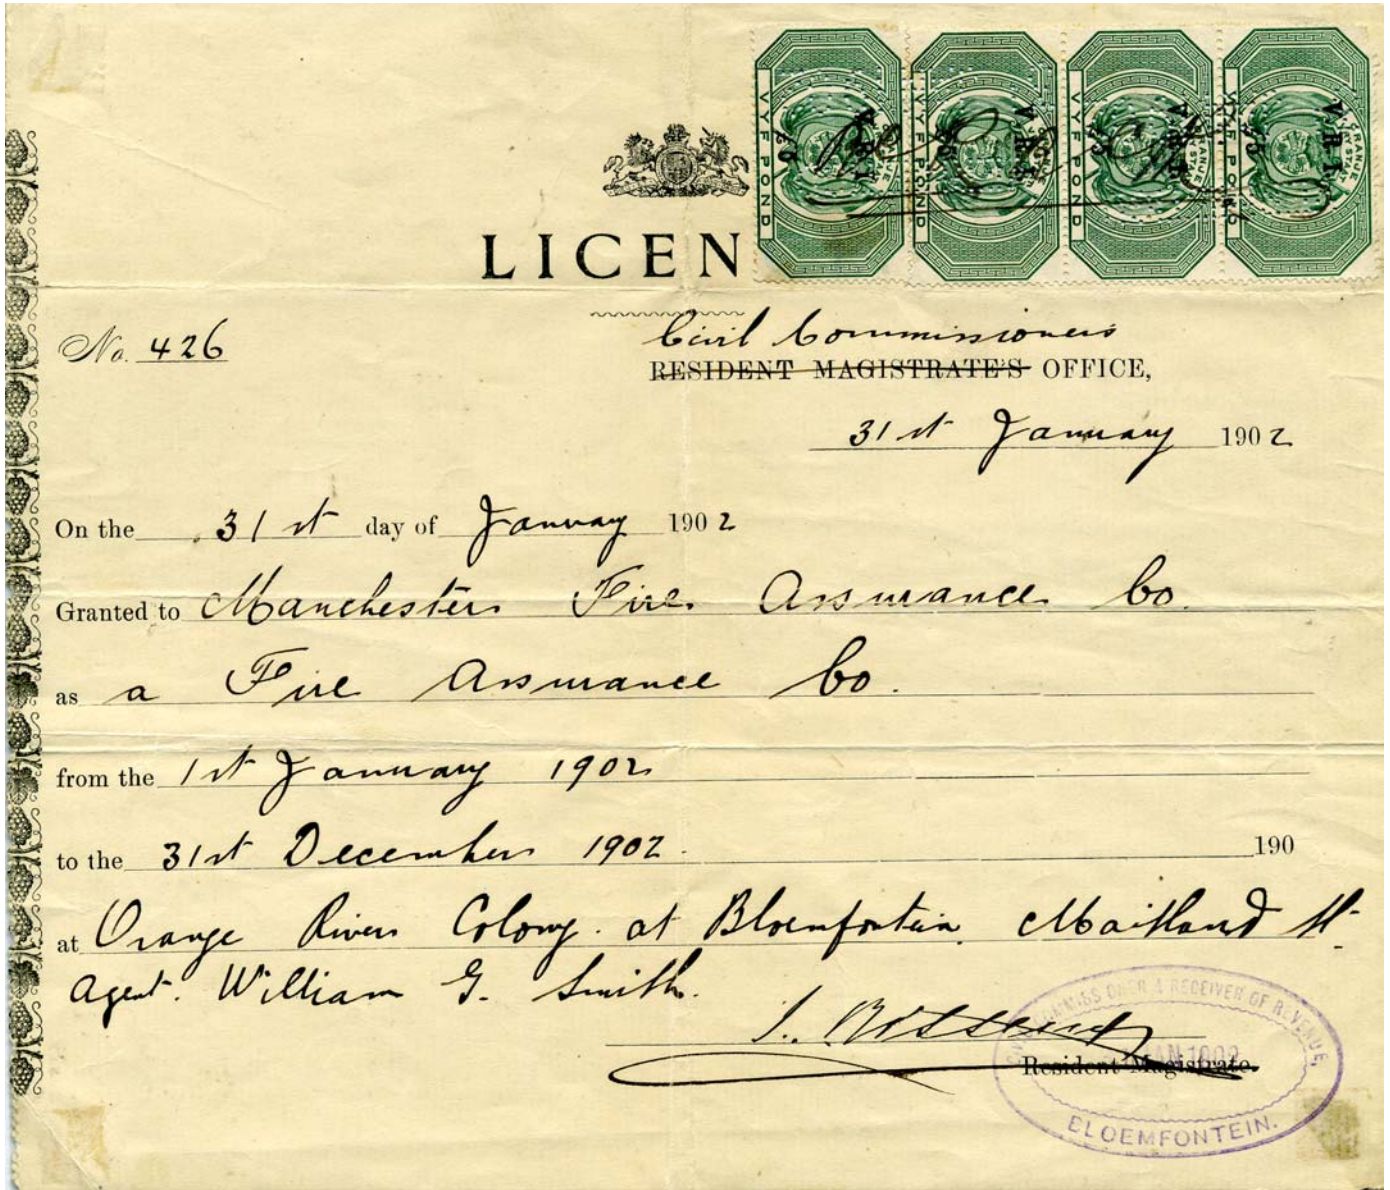 VYF POND
VYF POND
VYF POND
VYF POND
V.R.I.
V.R.I.
V.R.I.
V.R.I.
LICEN
No. 426
Civil Commissioners
RESIDENT MAGISTRATE'S OFFICE,
31st January 1902
On the 31st day of January 1902
Granted to Manchester Fire Assurance Co.
as a Fire Assurance Co.
from the 1st January 1902
to the 31st December 1902. 190
at Orange River Colony. at Bloemfontein, Maitland St.
Agent. William G. Smith.
Resident Magistrate.
CIVIL COMMISSIONER & RECEIVER OF REVENUE,
JAN 1902
BLOEMFONTEIN.